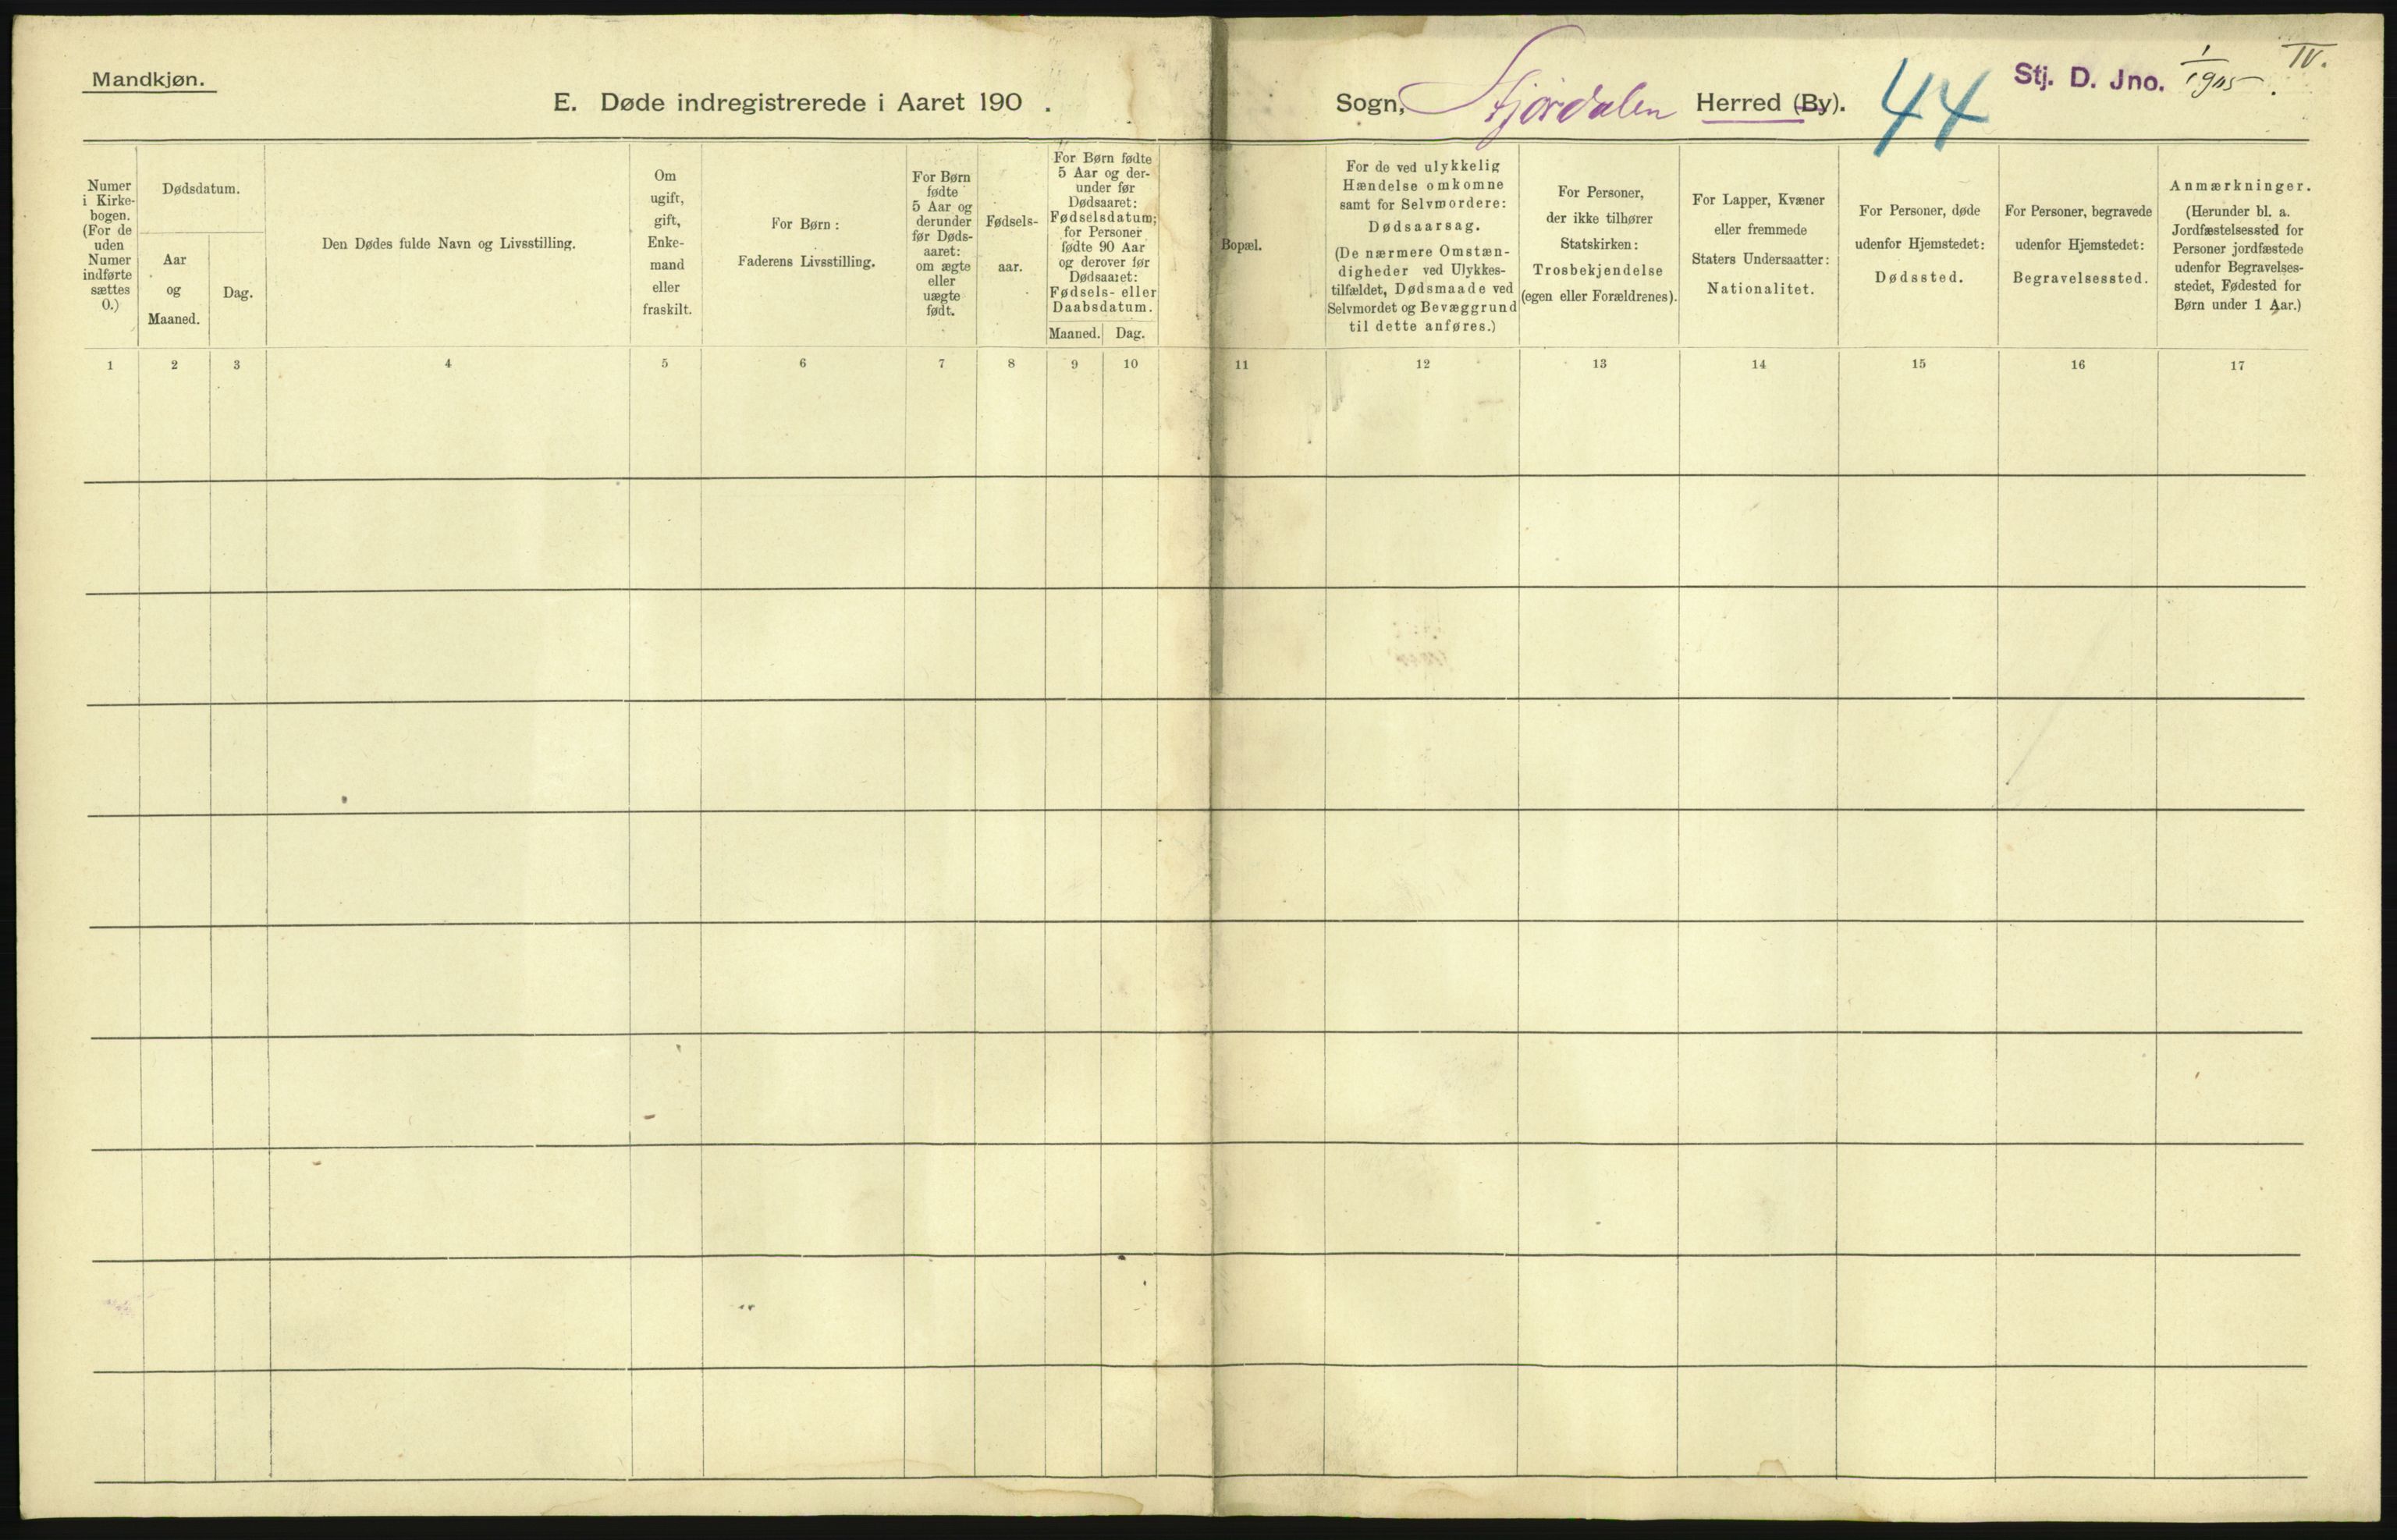 Mandkjøn.
E. Døde indregistrerede i Aaret 190 .
Sogn, Stjørdalen Herred (By).
44
Stj. D. Jno. 1/1905.
IV.
Numer
i Kirke-
bogen.
(For de
uden
Numer
indførte
sættes
0.)
Dødsdatum.
Aar
og
Maaned.
Dag.
Den Dødes fulde Navn og Livsstilling.
Om
ugift,
gift,
Enke-
mand
eller
fraskilt.
For Børn:
Faderens Livsstilling.
For Børn
fødte
5 Aar og
derunder
før Døds-
aaret:
om ægte
eller
uægte
født.
Fødsels-
aar.
For Børn fødte
5 Aar og der-
under før
Dødsaaret:
Fødselsdatum;
for Personer
fødte 90 Aar
og derover før
Dødsaaret:
Fødsels- eller
Daabsdatum.
Maaned. Dag.
Bopæl.
For de ved ulykkelig
Hændelse omkomne
samt for Selvmordere:
Dødsaarsag.
(De nærmere Omstæn-
digheder ved Ulykkes-
tilfældet, Dødsmaade ved
Selvmordet og Bevæggrund
til dette anføres.)
For Personer,
der ikke tilhører
Statskirken:
Trosbekjendelse
(egen eller Forældrenes).
For Lapper, Kvæner
eller fremmede
Staters Undersaatter:
Nationalitet.
For Personer, døde
udenfor Hjemstedet:
Dødssted.
For Personer, begravede
udenfor Hjemstedet:
Begravelsessted.
Anmærkninger.
(Herunder bl. a.
Jordfæstelsessted for
Personer jordfæstede
udenfor Begravelses-
stedet, Fødested for
Børn under 1 Aar.)
1 2 3 4 5 6 7 8 9 10 11 12 13 14 15 16 17